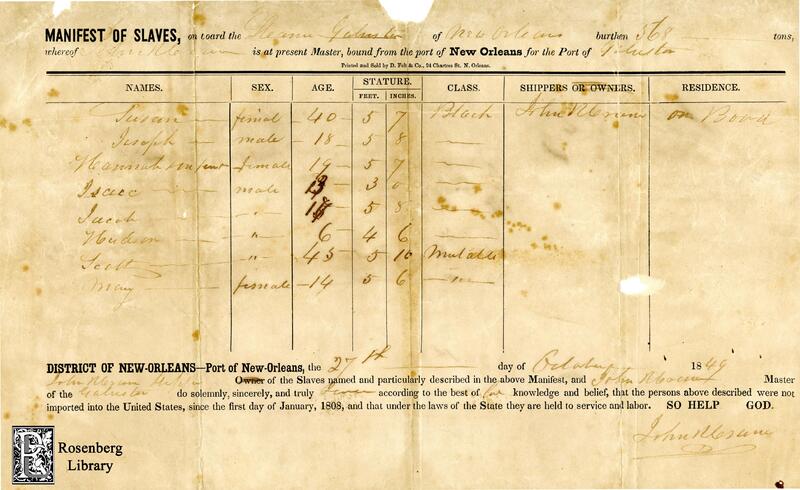 MANIFEST OF SLAVES, on board the Steamer Galveston of New Orleans burthen 568 tons,
whereof is at present Master, bound from the port of New Orleans for the Port of Galveston
Printed and Sold by D. Felt & Co., 24 Chartres St. N. Orleans.
NAMES. SEX. AGE. STATURE. CLASS. SHIPPERS OR OWNERS. RESIDENCE.
FEET. INCHES.
Susan female 40 5 7 Black on Board
Joseph male 18 5 8
Hannah female 19 5 7
Isaac male 3 0
Jacob " 5 8
Hudson " 6 4 6
Scott " 45 5 10 Mulatto
Mary female 14 5 6
DISTRICT OF NEW-ORLEANS—Port of New-Orleans, the 27th day of October 1849
Owner of the Slaves named and particularly described in the above Manifest, and Master
of the Galveston do solemnly, sincerely, and truly Swear according to the best of knowledge and belief, that the persons above described were not
imported into the United States, since the first day of January, 1808, and that under the laws of the State they are held to service and labor. SO HELP GOD.
Rosenberg
Library